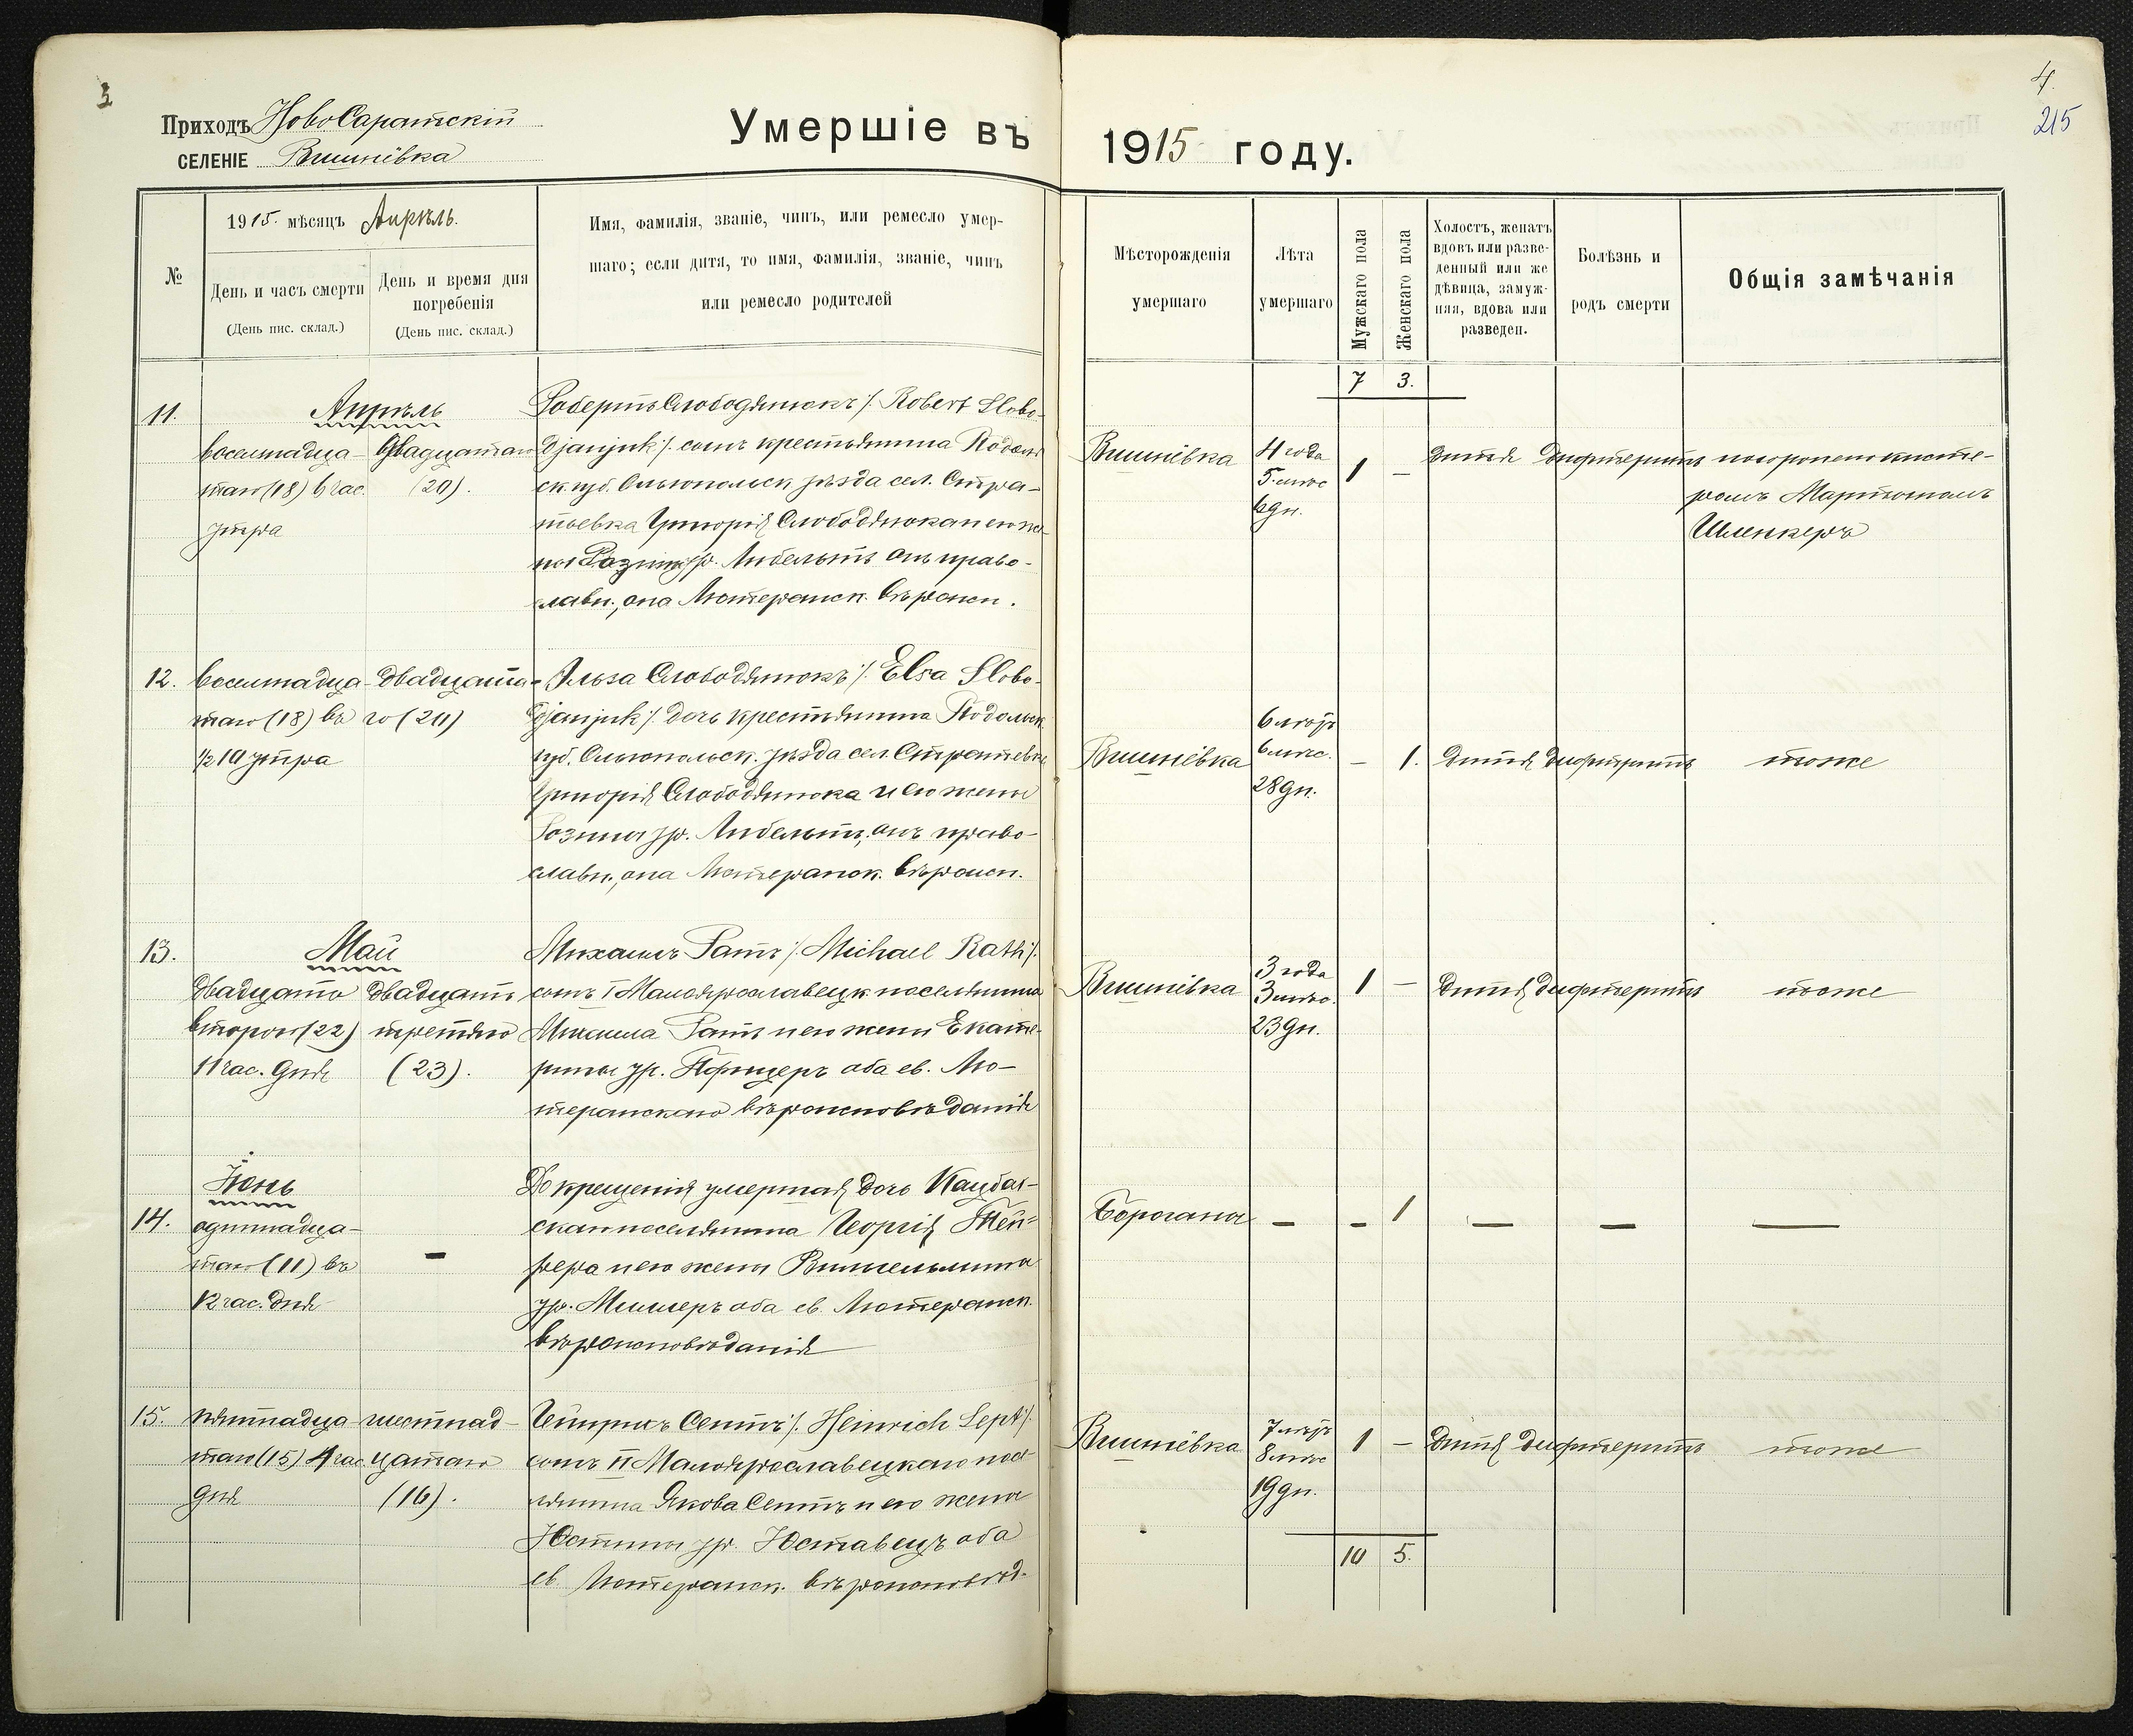 3
4.
215
Приходъ НовоСаратскій
СЕЛЕНІЕ Вишнёвка
Умершіе въ 1915 году.
№
1915. мѣсяцъ Апрѣль.
День и часъ смерти
(День пис. склад.)
День и время дня
погребенія
(День пис. склад.)
Имя, фамилія, званіе, чинъ, или ремесло умер-
шаго; если дитя, то имя, фамилія, званіе, чинъ
или ремесло родителей
Мѣсторожденія
умершаго
Лѣта
умершаго
Мужскаго пола
Женскаго пола
Холостъ, женатъ
вдовъ или разве-
денный или же
дѣвица, замуж-
няя, вдова или
разведен.
Болѣзнь и
родъ смерти
Общія замѣчанія
7 3.
11.
Апрѣль
восемнадца-
таго (18) 6 час.
утра
двадцатаго
(20).
Робертъ Слободянюкъ /. Robert Slobo-
djanjuk /. сынъ крестьянина Подоль
ск губ. Ольгопольск уѣзда сел. Стра-
тьевка Григорія Слободянюка и его же-
ны Розины ур. Либельтъ онъ право-
славн., она Лютеранск. вѣроисп.
Вишнёвка
4 года
5. мѣс
6 дн.
1 —
дитя
дифтеритъ
похороненъ кисте-
ромъ Мартыномъ
Шленкеръ
12.
восемнадца-
таго (18) въ
½ 10 утра
двадцата-
го (20)
Эльза Слободянюкъ /. Elsa Slobo-
djanjuk /. дочь крестьянина Подольск
губ. Ольгопольск. уѣзда сел. Стратьевка
Григорія Слободянюка и его жены
Розины ур. Либельтъ, онъ право-
славн., она Лютеранск. вѣроисп.
Вишнёвка
6 мѣс.
28 дн.
— 1.
дитя
дифтеритъ
тоже
13.
Май
двадцать
второго (22)
11 час. дня
двадцать
третьяго
(23).
Михаилъ Ратъ /. Michael Rath /.
сынъ I Малоярославецк поселянина
Михаила Ратъ и его жены Екате-
рины ур. Пфицеръ оба ев. Лю-
теранскаго вѣроисповѣданія
Вишнёвка
3 года
3 мѣс.
23 дн.
1 —
дитя
дифтеритъ
тоже
Іюнь
14.
одиннадца-
таго (11) въ
12 час. дня
—
До крещенія умершая дочь Кацбах-
скаго поселянина Георгія
и его жены Вильгельмины
ур. Миллеръ оба ев. Лютеранск.
вѣроисповѣданія
Борогана
— — 1 — — —
15.
пятнадца-
таго (15) 4 час
дня
шестнад-
цатаго
(16).
Гейнрихъ Септъ /. Heinrich Sept /.
сынъ II Малоярославецкаго посе-
лянина Якова Септъ и его жены
Юстины ур. Юставецъ оба
ев. Лютеранск. вѣроисповѣд.
Вишнёвка
8 мѣс
19 дн.
1 —
дитя
дифтеритъ
тоже
10 5.